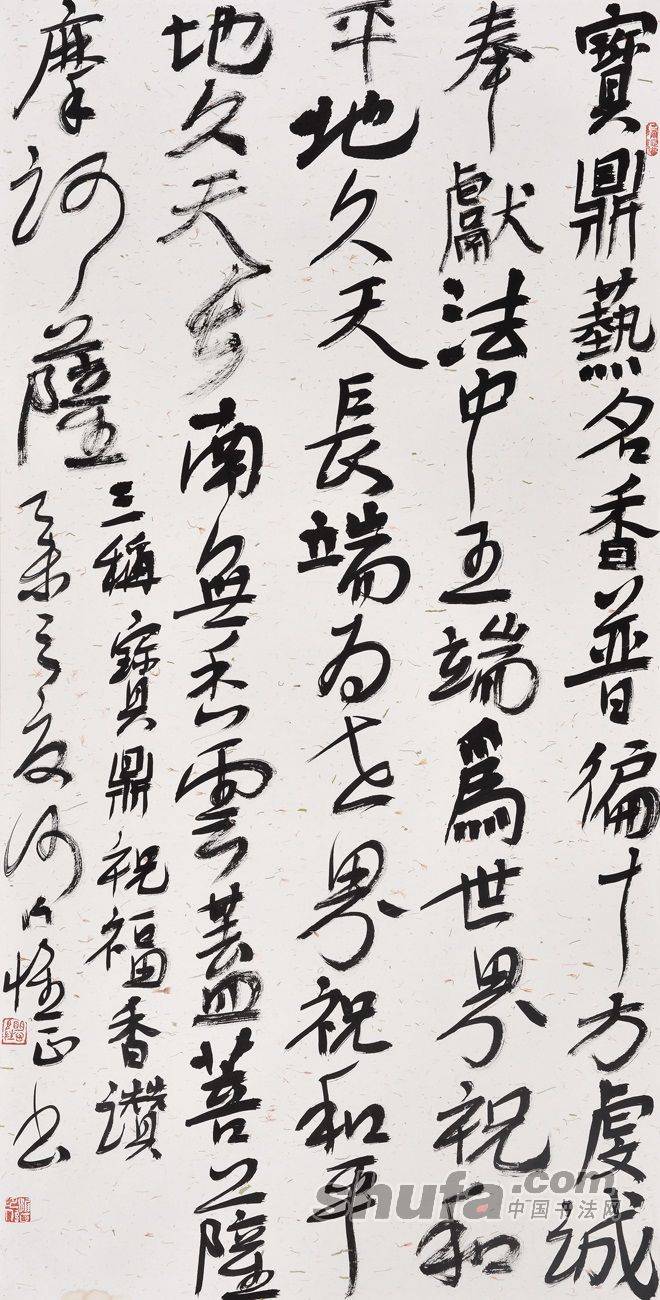 寶鼎爇名香普徧十方虔誠
奉獻法中王端爲世界祝和
平地久天長端为世界祝和平
地久天长南無香雲蓋菩薩
摩訶薩
三稱寶鼎祝福香讚
乙未之夏沙门正书
shufa.com
中国书法网